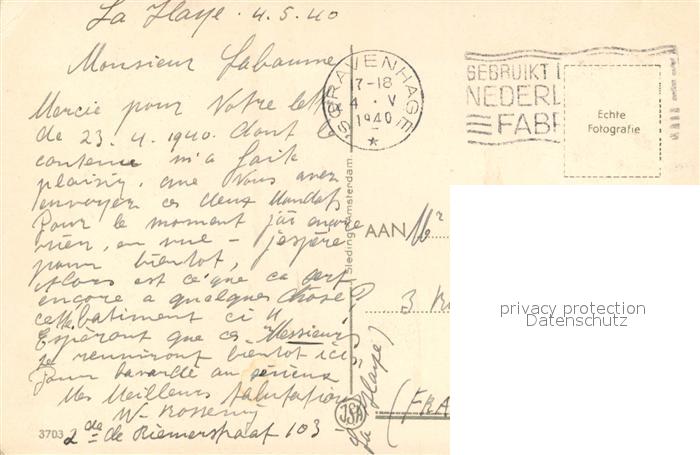 La Haye . 4.5.40
Monsieur Labaume
Mercie pour Votre lett
de 23.4.1940. dont le
contenu m'a fait
plaisir, que Vous avez
envoyer ces deux Mandats
Pour le moment j'ai encore
rien, en vue - j'espère
pour bientôt,
Alors est ce que ca sert
encore a quelques chose?
cette batiment ci
Espérant que ces Messieurs
se reuniront bientot ici,
Pour bavarder au
Mes Meilleurs Salutations
W.
2de de Riemerstraat 103
(La Haye)
3703
'S GRAVENHAGE
17-18
4 . V
1940
*
GEBRUIKT
NEDERL
FABR
Echte
Fotografie
Sieding Amsterdam
AAN Mr
3
(FRA
JSA
privacy protection
Datenschutz